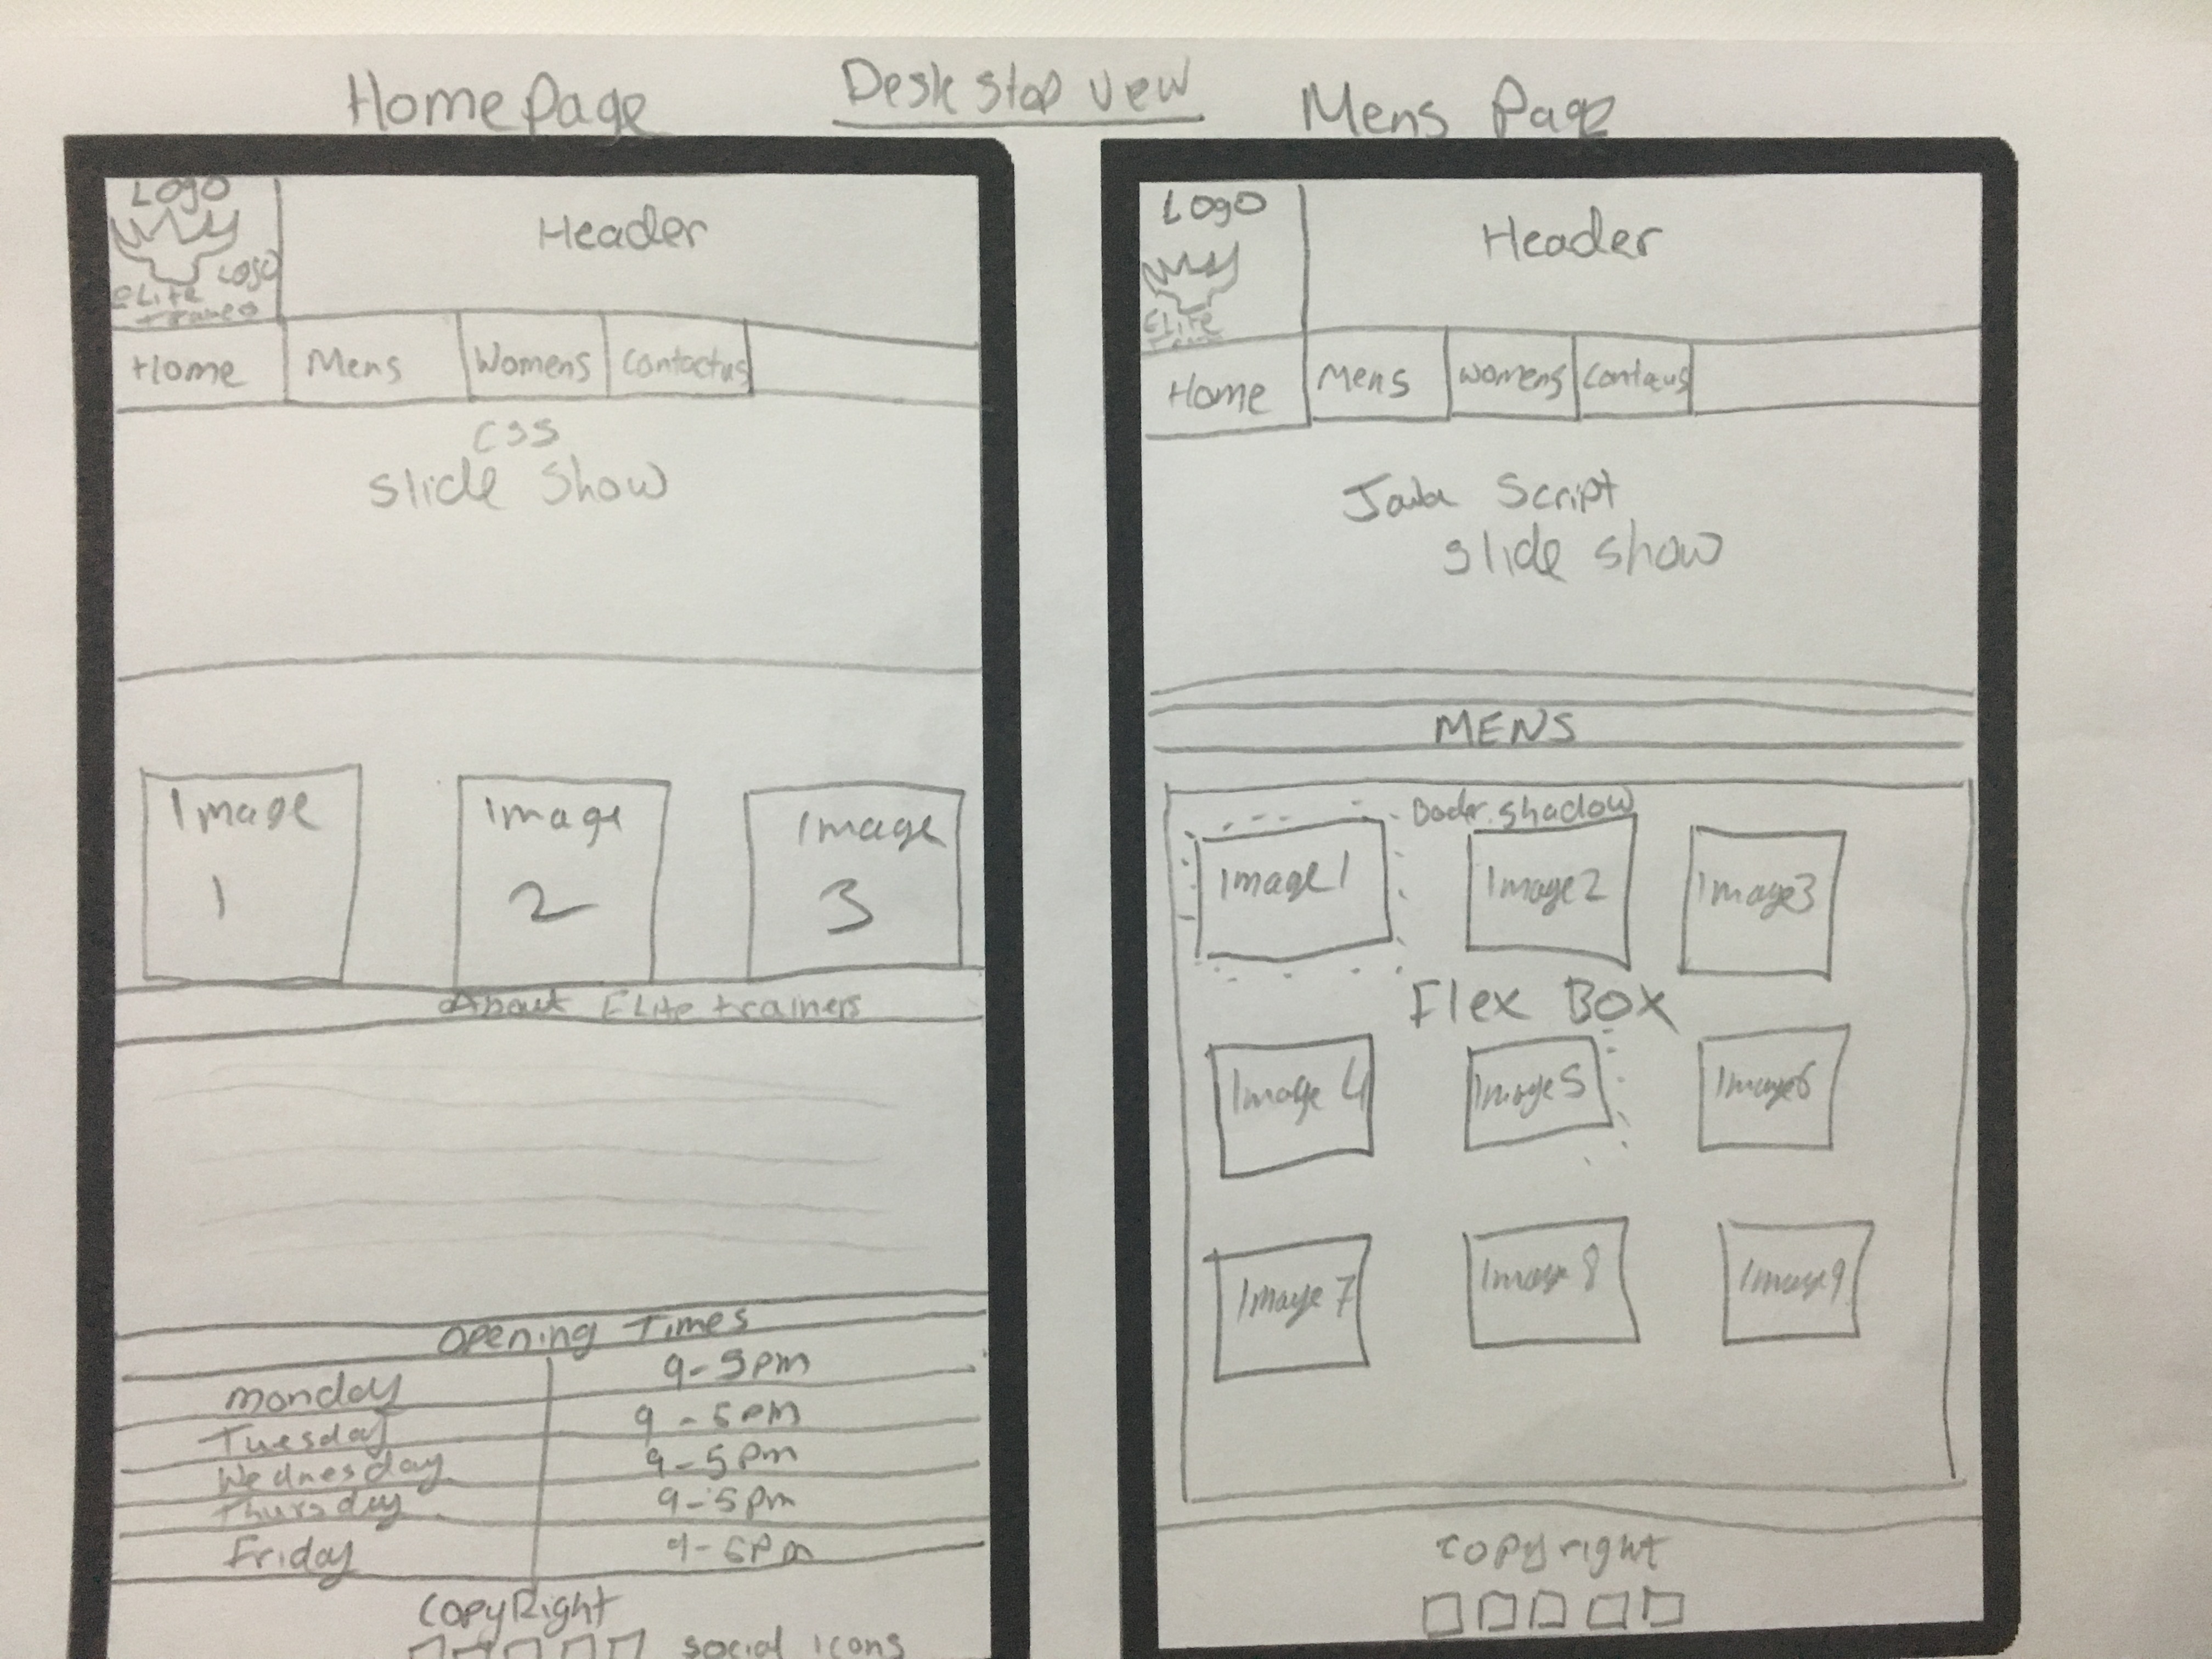 Home Page
Desk stop view
Mens Page
Logo
Logo
eLite
Header
Home
Mens
Womens
Contactus
CSS
Slide Show
Image
1
Image
2
Image
3
About ELite trainers
Opening Times
Monday
9-5pm
Tuesday
9-5pm
Wednesday
9-5pm
Thursday
9-5pm
Friday
9-5pm
CopyRight
social icons
Logo
ELite
Header
Home
Mens
Womens
Java Script
slide show
MENS
shadow
Image1
Image2
Image3
Flex BOX
Image 4
Image5
Image6
Image 7
Image 8
Image9
copyright